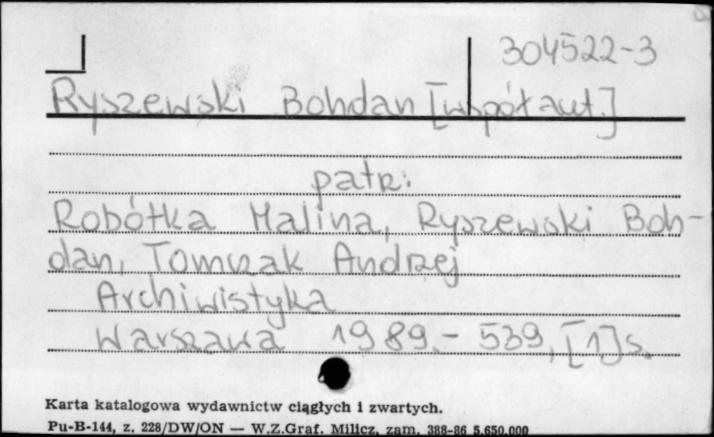 304522-3
Ryszewski Bohdan [współaut.]
patrz:
Robótka Halina, Ryszewski Boh-
dan, Tomczak Andrzej
Archiwistyka
Warszawa 1989.- 539, [1] s.
Karta katalogowa wydawnictw ciągłych i zwartych.
Pu-B-144, z. 228/DW/ON — W.Z.Graf. Milicz, zam. 388-86 5.650.000